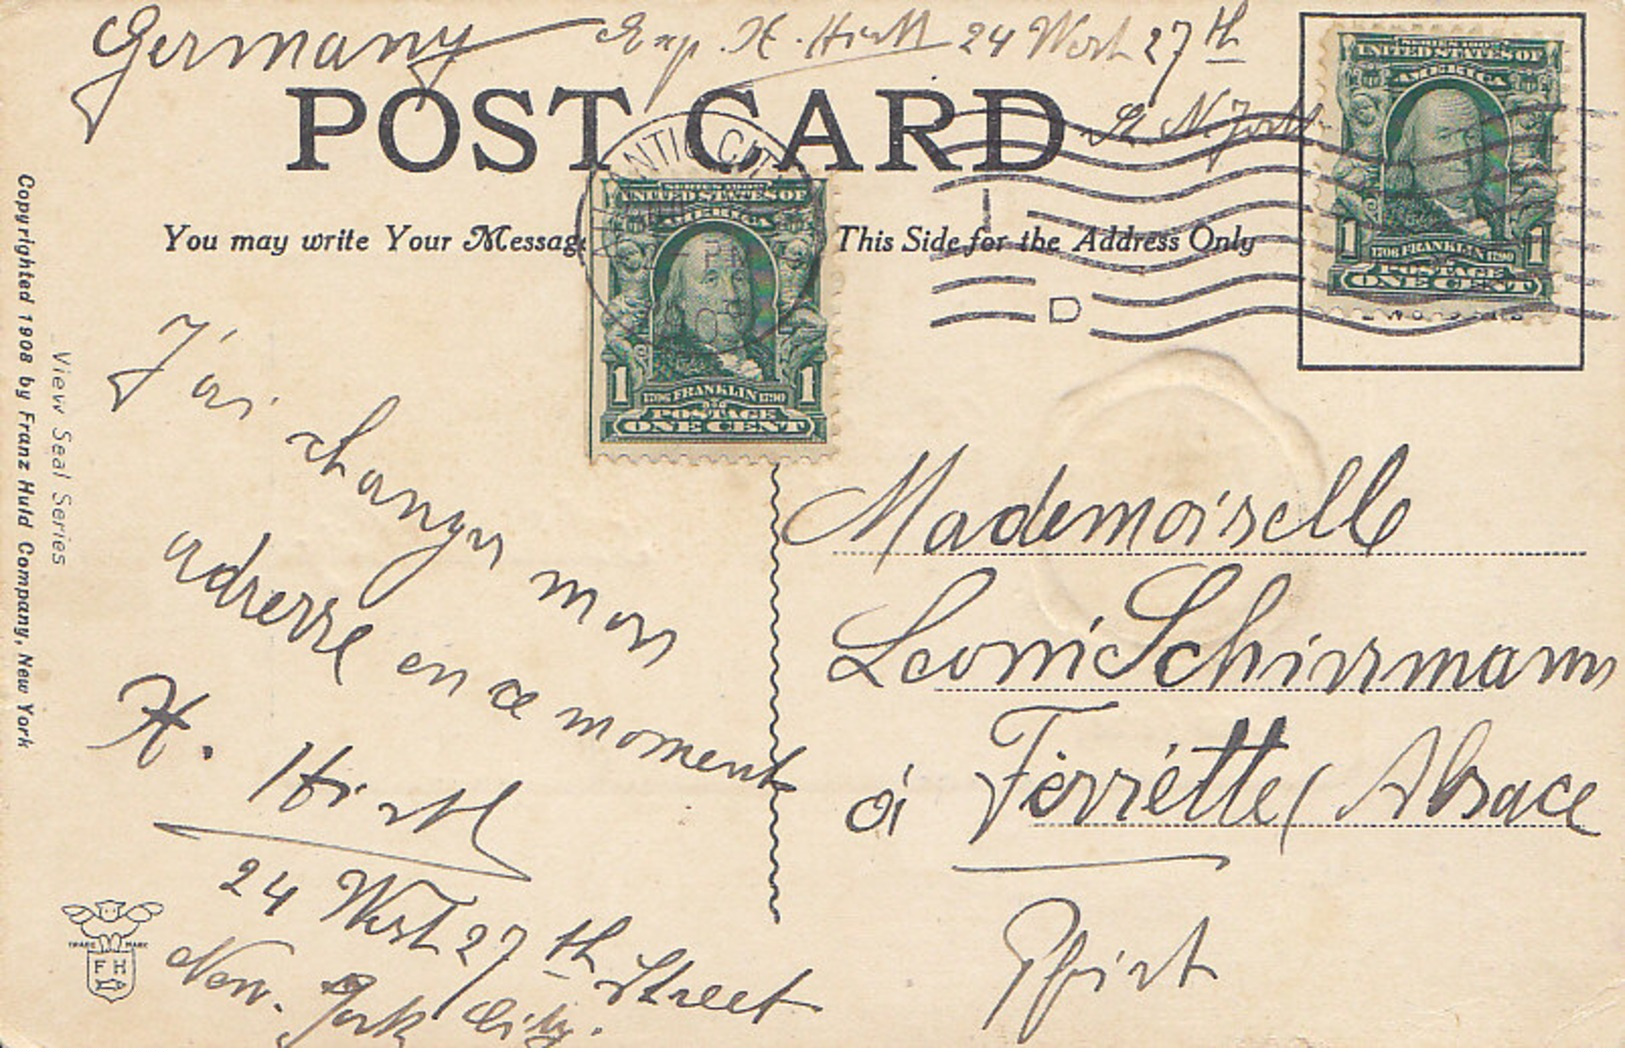 Germany Exp. H. Hirtl 24 West 27th
St. N. York
POST CARD
You may write Your Message
This Side for the Address Only
ANTIC CITY
PM
D
SERIES 1902
UNITED STATES OF
AMERICA
1 1
1706 FRANKLIN 1790
POSTAGE
ONE CENT
UNITED STATES OF
AMERICA
1 1
1706 FRANKLIN 1790
POSTAGE
ONE CENT
J'ai changer mon
adresse en ce moment
H. Hirtl
24 West 27th Street
New-York City.
Mademoiselle
Leoni Schirrmann
à Férrétte (Alsace
Pfirt
View Seal Series
Copyrighted 1908 by Franz Huld Company, New York
TRADE MARK
F H